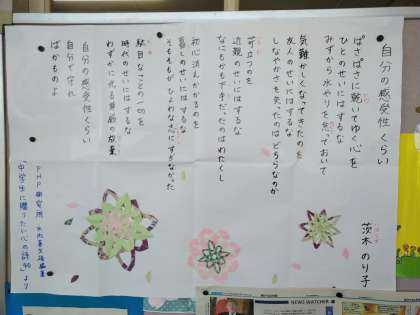 自分の感受性くらい
茨木 のり子
ぱさぱさに乾いてゆく心を
ひとのせいにはするな
みずから水やりを怠っておいて
気難かしくなってきたのを
友人のせいにはするな
しなやかさを失ったのはどちらなのか
苛立つのを
近親のせいにはするな
なにもかも下手だったのはわたくし
初心消えかかるのを
暮しのせいにはするな
そもそもが ひよわな志にすぎなかった
駄目なことの一切を
時代のせいにはするな
わずかに光る尊厳の放棄
自分の感受性くらい
自分で守れ
ばかものよ
PHP研究所
「中学生に贈りたい心の詩40」より
NEWS WATCHER